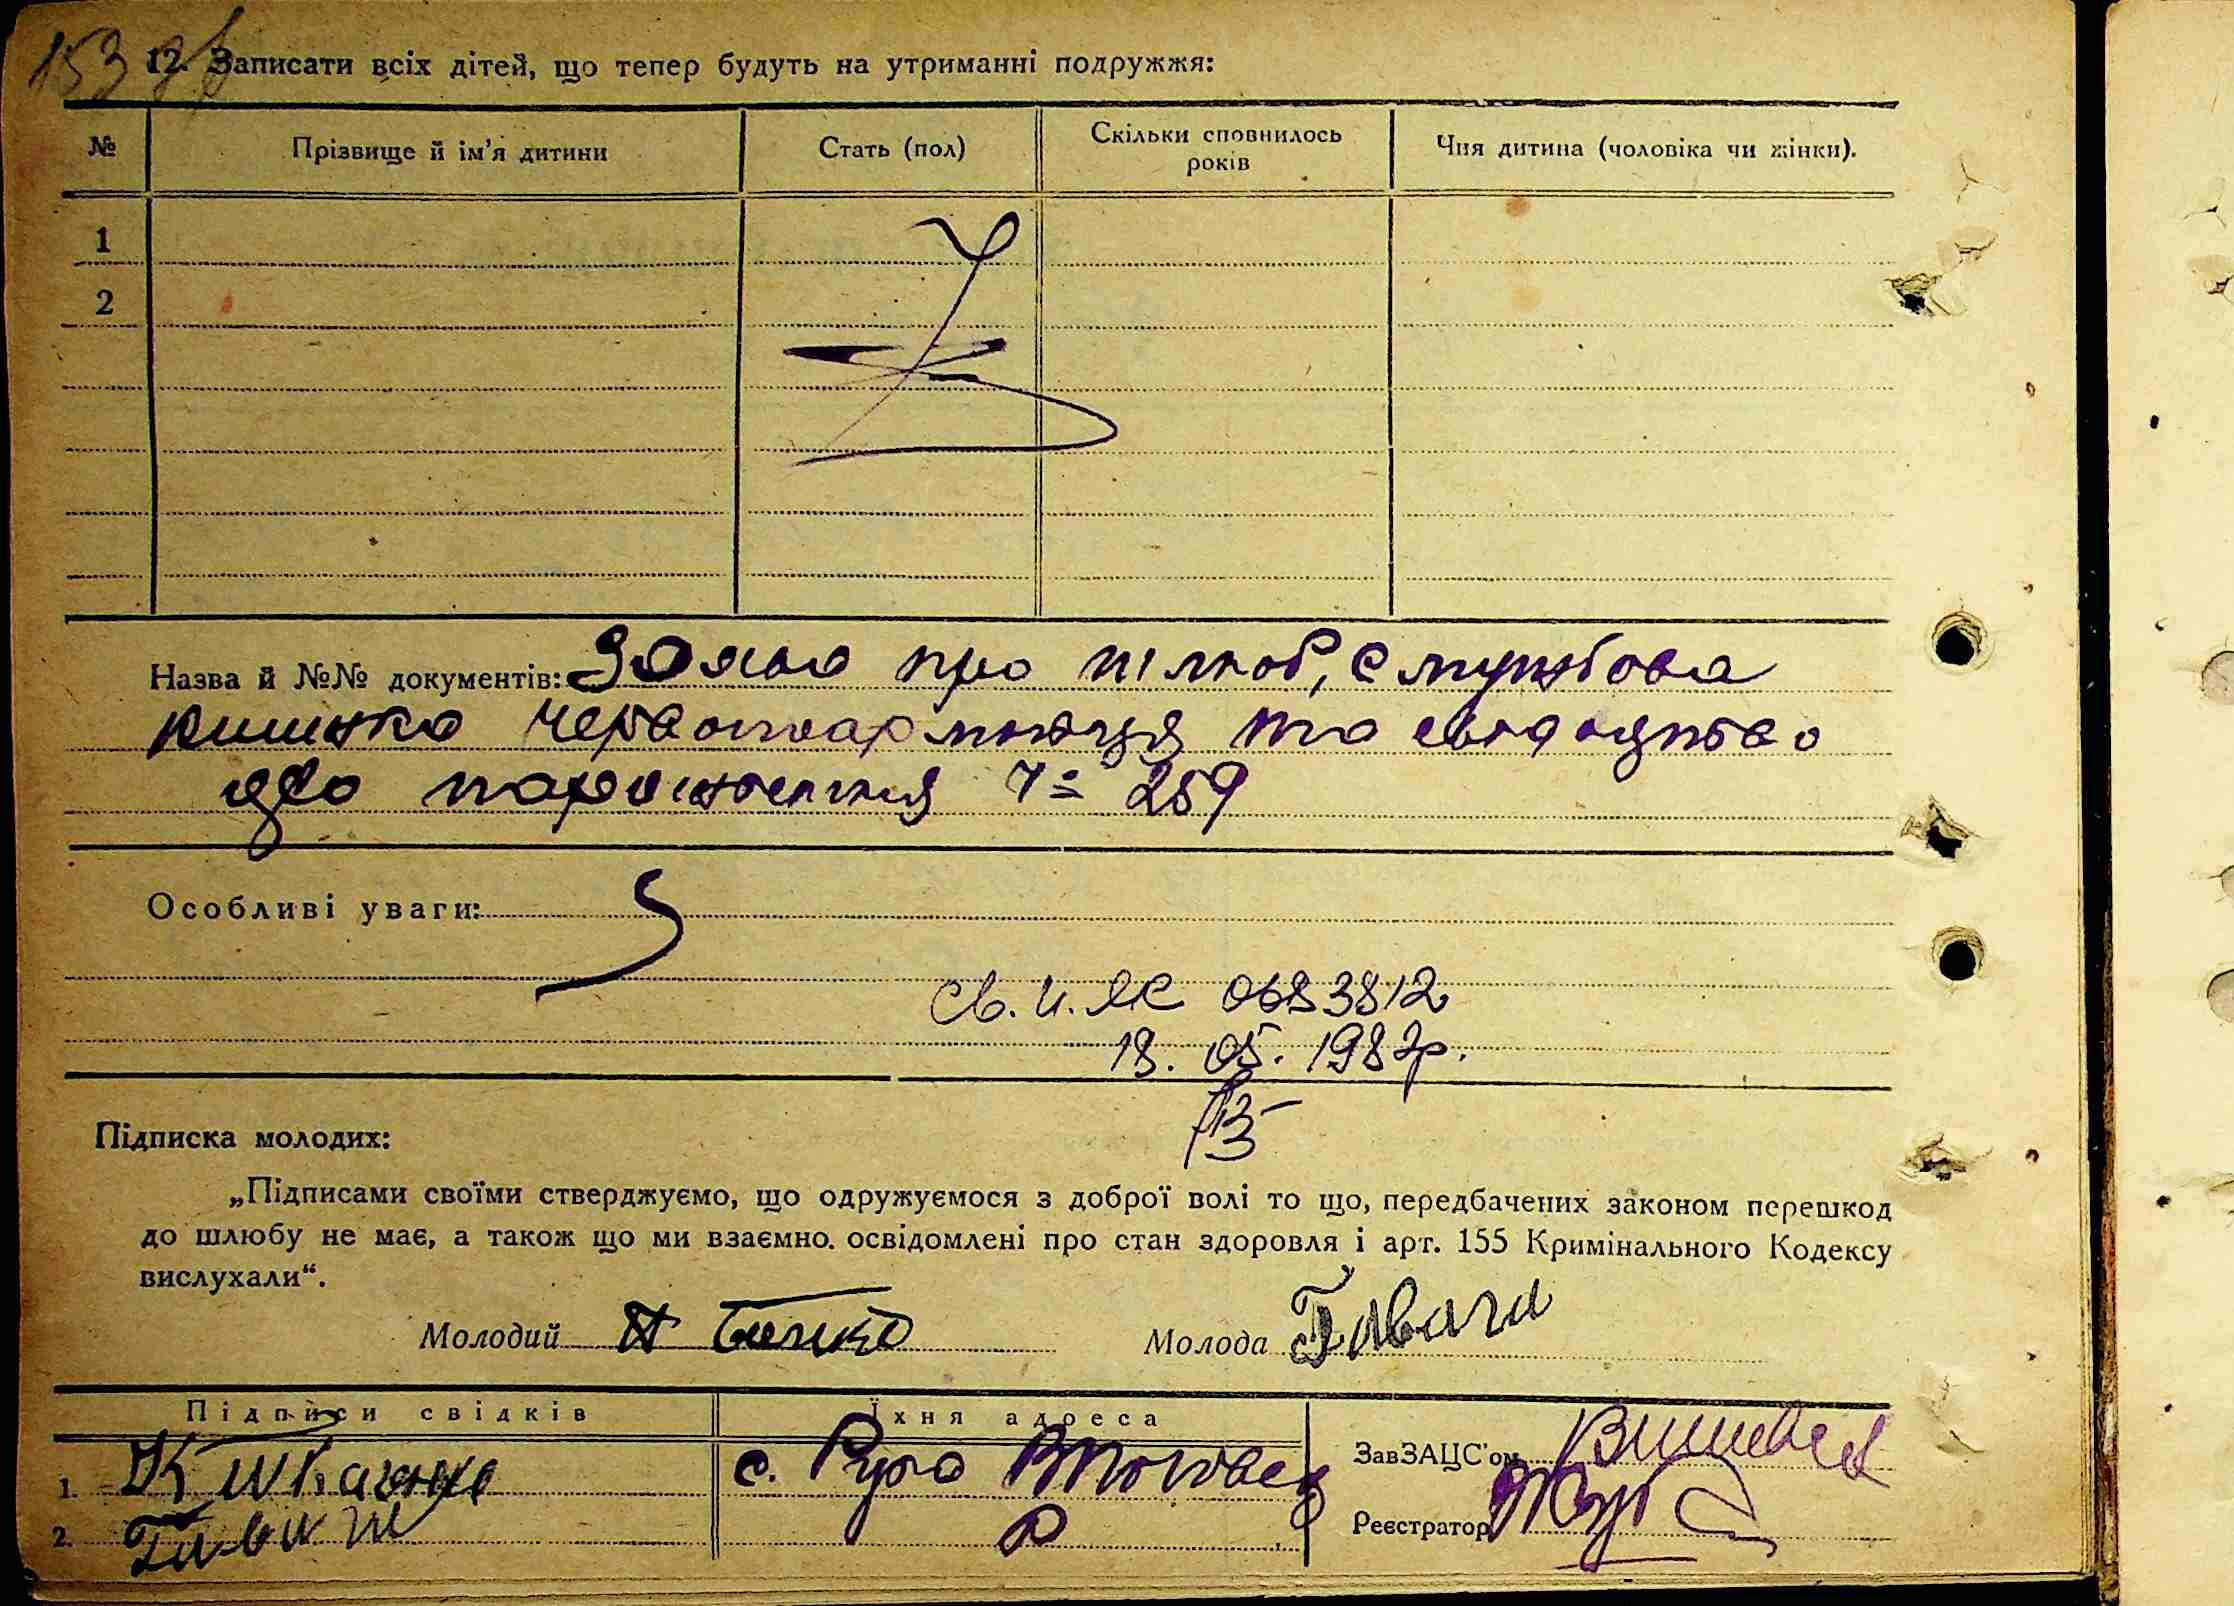 153 зв
12. Записати всіх дітей, що тепер будуть на утриманні подружжя:
№ Прізвище й ім'я дитини Стать (пол) Скільки сповнилось років Чия дитина (чоловіка чи жінки).
1
2
Назва й №№ документів: Заява про шлюб, службова
книжка червоноармійця та свідоцтво
про народження Ч= 259
Особливі уваги:
Св. И. ЯС 0683812
18. 05. 1987р.
Підписка молодих:
„Підписами своїми стверджуємо, що одружуємося з доброї волі то що, передбачених законом перешкод
до шлюбу не має, а також що ми взаємно. освідомлені про стан здоровля і арт. 155 Кримінального Кодексу
вислухали“.
Молодий Молода
Підписи свідків Їхня адреса
ЗавЗАЦС'ом
1. с. Руда
2. Реєстратор